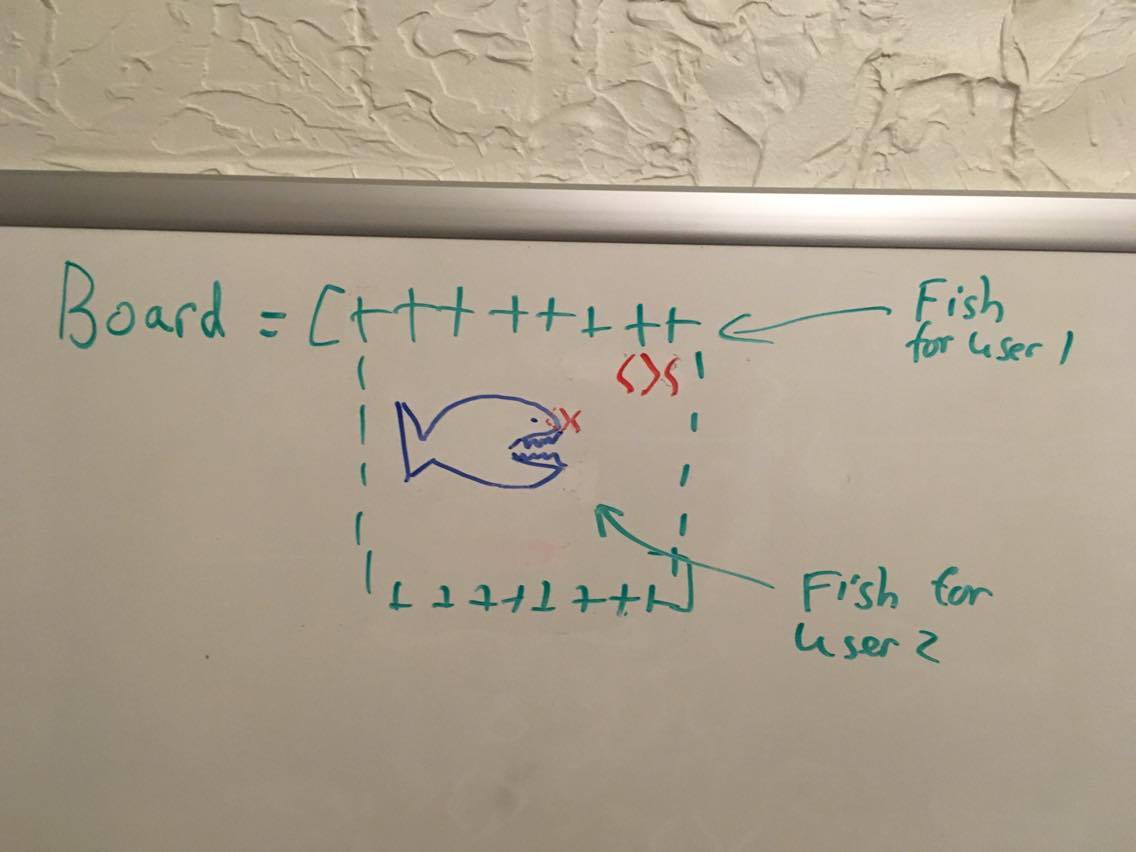 Board = [+++ ++ + ++
Fish
for user 1
<><
x
+ + + + + + + + ]
Fish for
user 2